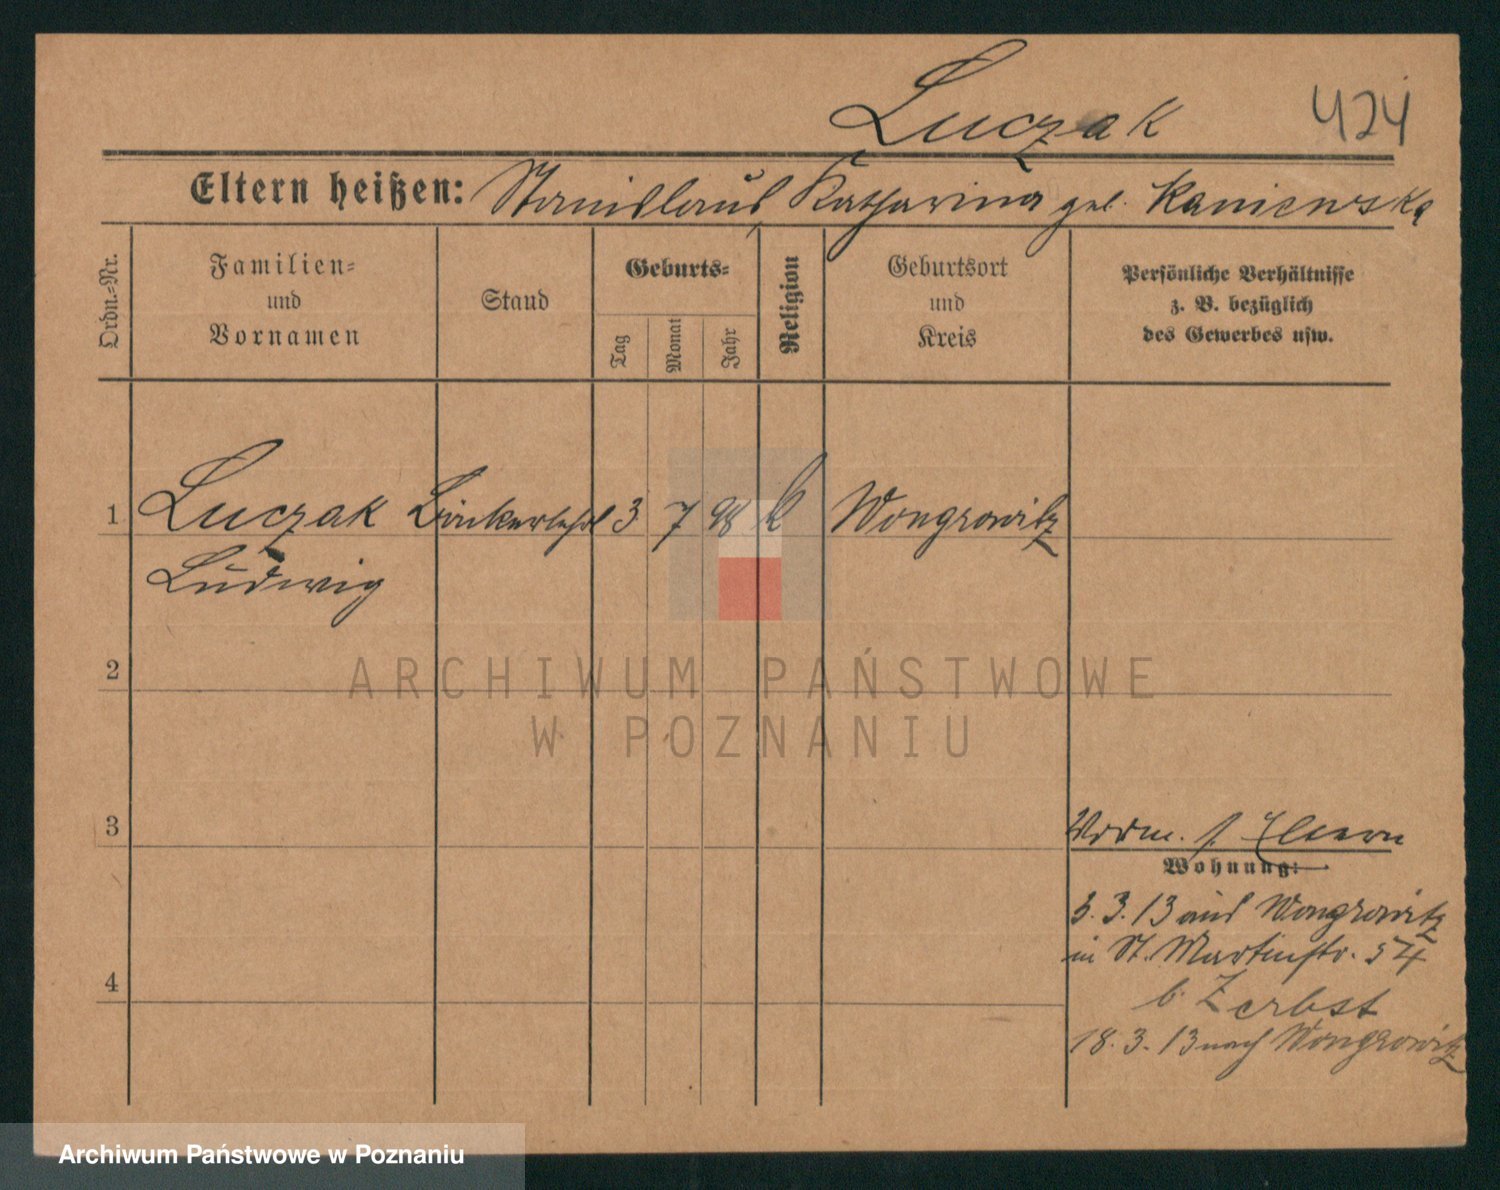 Luczak 424
Eltern heißen: Stanislaus, Katharina geb. Kaniewska
Ordn.-Nr.
Familien-
und
Vornamen
Stand
Geburts-
Tag
Monat
Jahr
Religion
Geburtsort
und
Kreis
Persönliche Verhältnisse
z. B. bezüglich
des Gewerbes usw.
1 Luczak Bäckerlehrl 3 7 98 k Wongrowitz
Ludwig
2
ARCHIWUM PAŃSTWOWE
W POZNANIU
3
Vorm. s. Eltern
Wohnung:
3. 3. 13 aus Wongrowitz
in St. Martinstr. 54
4
b. Zerbst
18. 3. 13 nach Wongrowitz
Archiwum Państwowe w Poznaniu